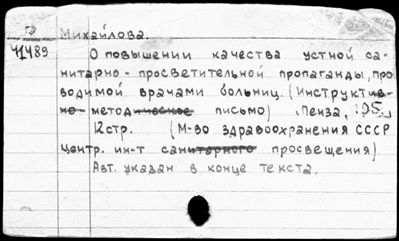 Михайлова.
41489
О повышении качества устной са-
нитарно-просветительной пропаганды, про
водимой врачами больниц. (Инструктив-
но-методическое письмо) Пенза,
12стр. (М-во здравоохранения СССР
Центр. ин-т санитарного просвещения)
Авт. указан в конце текста.